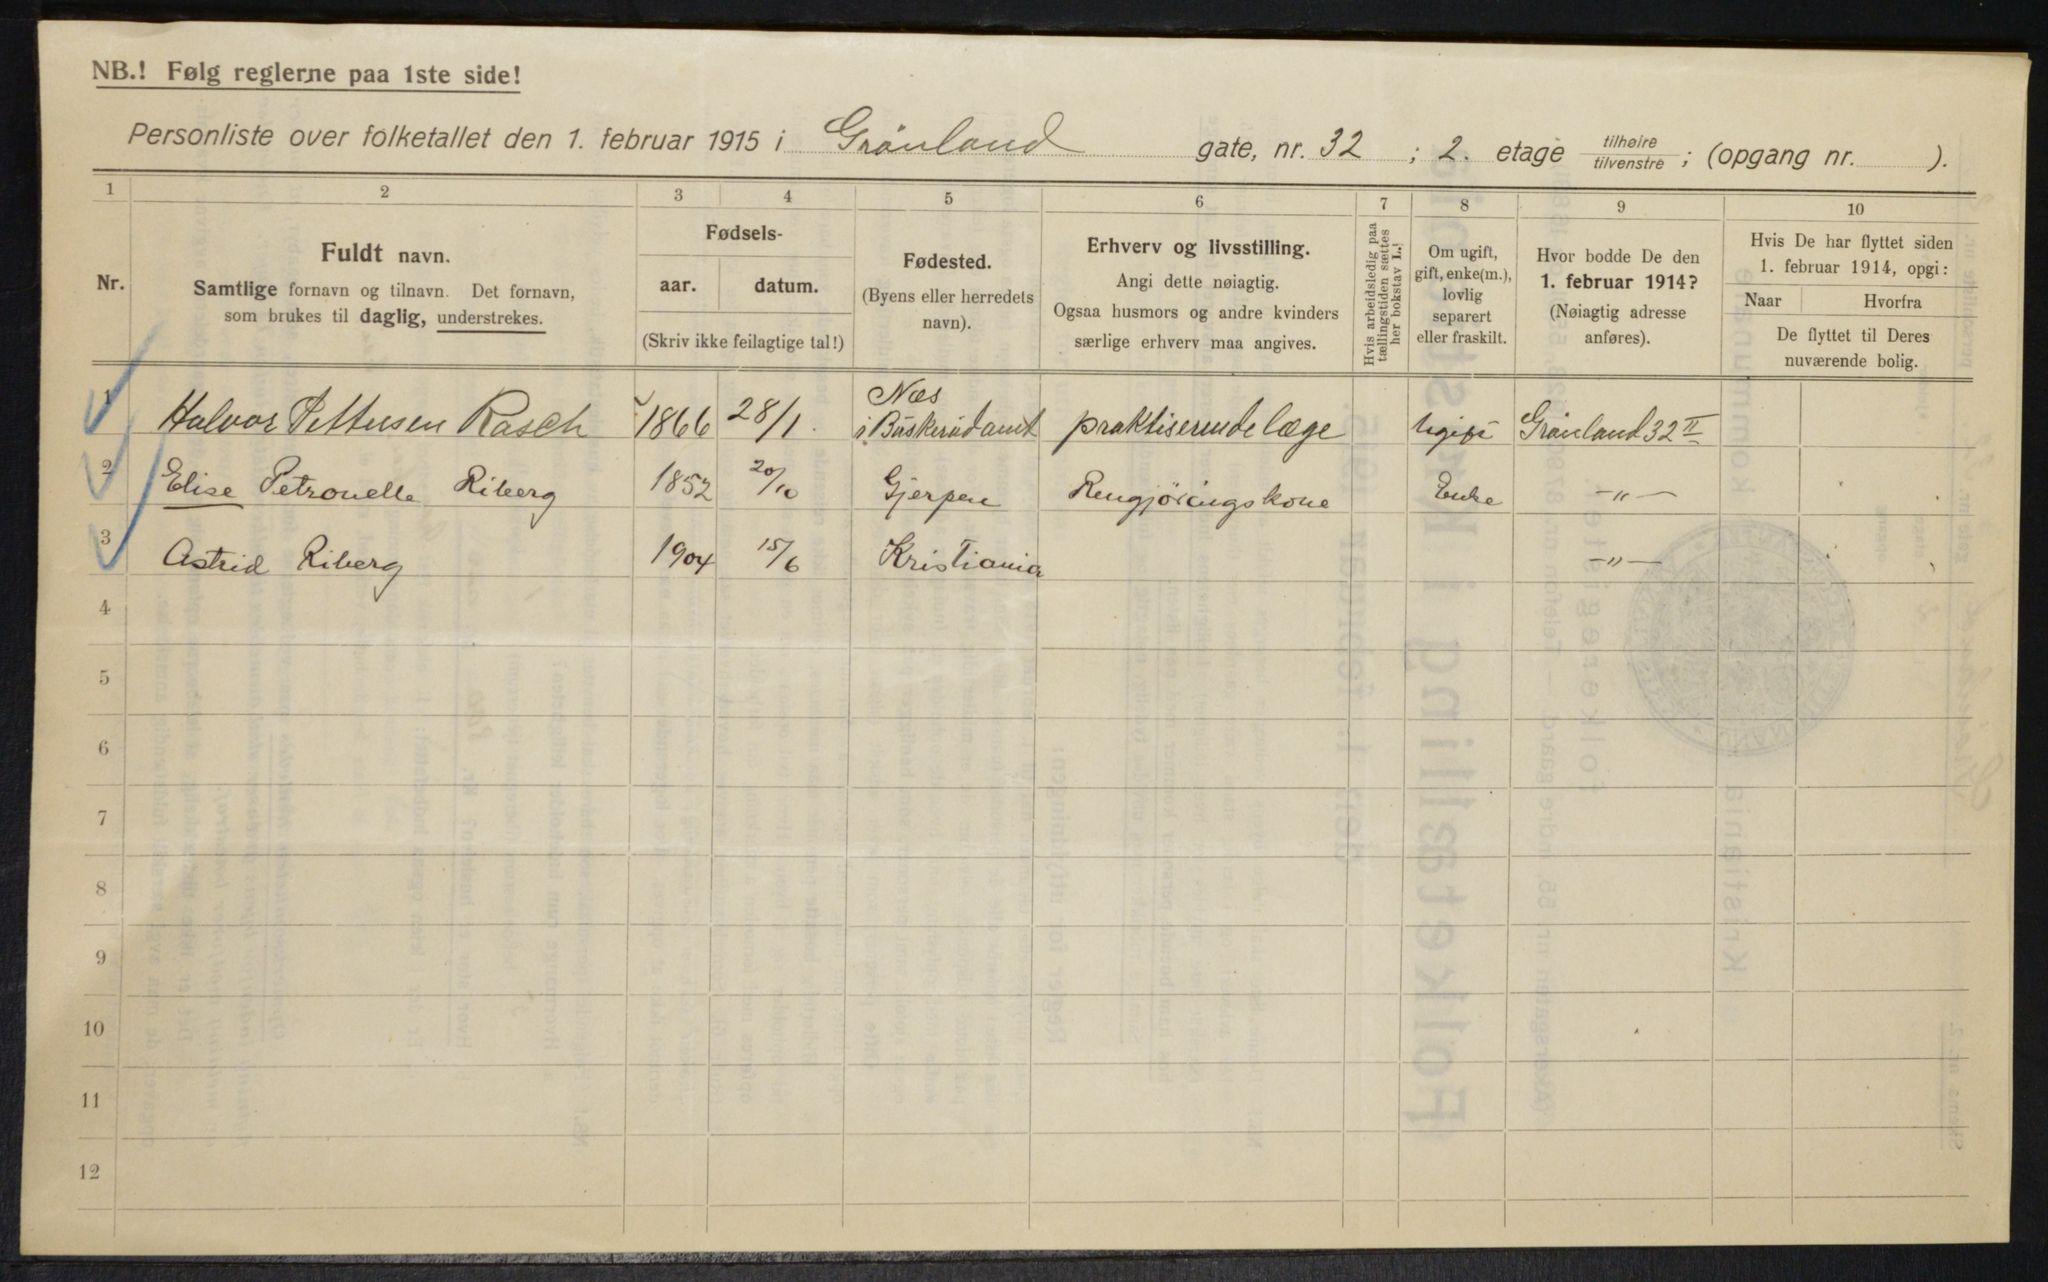 NB.! Følg reglerne paa 1ste side!
Personliste over folketallet den 1. februar 1915 i Grönland gate, nr. 32 ; 2. etage tilhøire/tilvenstre ; (opgang nr. ).
1 2 3 4 5 6 7 8 9 10
Nr.
Fuldt navn.
Samtlige fornavn og tilnavn. Det fornavn,
som brukes til daglig, understrekes.
Fødsels-
aar. datum.
(Skriv ikke feilagtige tal!)
Fødested.
(Byens eller herredets
navn).
Erhverv og livsstilling.
Angi dette nøiagtig.
Ogsaa husmors og andre kvinders
særlige erhverv maa angives.
Hvis arbeidsledig paa
tællingstiden sættes
her bokstav L.!
Om ugift,
gift, enke(m.),
lovlig
separert
eller fraskilt.
Hvor bodde De den
1. februar 1914?
(Nøiagtig adresse
anføres).
Hvis De har flyttet siden
1. februar 1914, opgi:
Naar Hvorfra
De flyttet til Deres
nuværende bolig.
1 Halvor Pettersen Rasch 1866 28/1. Næs i Buskerud amt praktiserende læge Ugift Grönland 32 II
2 Elise Petronelle Riberg 1852 20/10 Gjerpen Rengjöringskone Enke -„-
3 Astrid Riberg 1904 15/6 Kristiania -„-
4
5
6
7
8
9
10
11
12